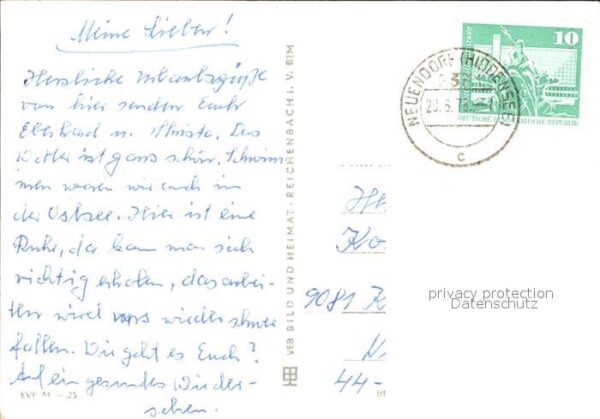 Meine Lieben!
Herzliche Urlaubsgrüße
von hier senden Euch
Eberhard u. Christa. Das
Wetter ist ganz schön. Schwim
men waren wir auch in
der Ostsee. Hier ist eine
Ruhe, da kann man sich
richtig erholen, das arbei-
ten wird uns wieder schwer
fallen. Wie geht es Euch?
Auf ein gesundes Wieder-
sehen.
EVP M -,25
VEB BILD UND HEIMAT · REICHENBACH i. V. BTM
NEUENDORF (HIDDENSEE)
20.6.
c
10
DEUTSCHE DEMOKRATISCHE REPUBLIK
9081 K
44-
privacy protection
Datenschutz